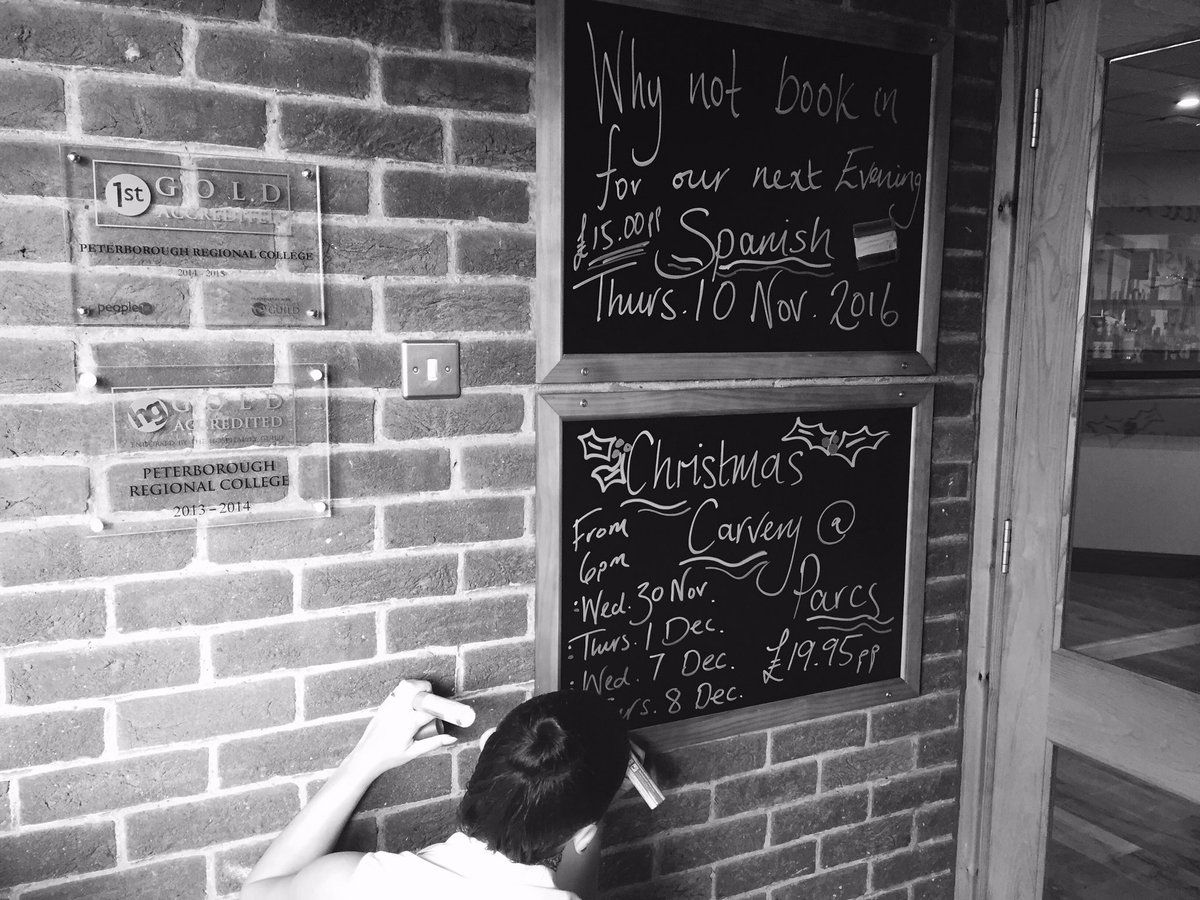 1st GOLD
ACCREDITED
PETERBOROUGH REGIONAL COLLEGE
2014-2015
people1st
GUILD
hg GOLD
ACCREDITED
ENDORSED BY THE HOSPITALITY GUILD
PETERBOROUGH
REGIONAL COLLEGE
2013-2014
Why not book in
for our next Evening
£15.00pp Spanish
Thurs. 10 Nov. 2016
Christmas
Carvery @
Parcs
From
6pm
:Wed. 30 Nov.
:Thurs. 1 Dec.
:Wed. 7 Dec.
8 Dec.
£19.95pp